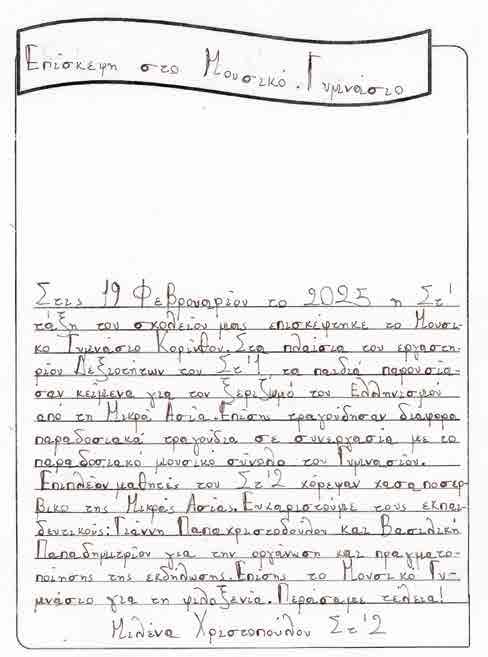 Επίσκεψη στο Μουσικό Γυμνάσιο
Στις 19 Φεβρουαρίου το 2025 η Στ'
τάξη του σχολείου μας επισκέφτηκε το Μουσι-
κό Γυμνάσιο Κορίνθου. Στα πλαίσια του εργαστη-
ρίου Δεξιοτήτων του Στ'1 τα παιδιά παρουσία-
σαν κείμενα για τον ξεριζωμό του Ελληνισμού
από τη Μικρά Ασία. Επίσης τραγούδησαν διάφορα
παραδοσιακά τραγούδια σε συνεργασία με το
παραδοσιακό μουσικό σύνολο του Γυμνασίου.
Επιπλέον μαθητές του Στ'2 χόρεψαν χασαποσερ-
βικο της Μικράς Ασίας. Ευχαριστούμε τους εκπαι-
δευτικούς: Γιάννη Παπαχριστοδούλου και Βασιλική
Παπαδημητρίου για την οργάνωση και πραγματο-
ποίησης της εκδήλωσης. Επίσης το Μουσικό Γυ-
μνάσιο για τη φιλοξενία. Περάσαμε τέλεια!
Μιλένα Χριστοπούλου Στ'2